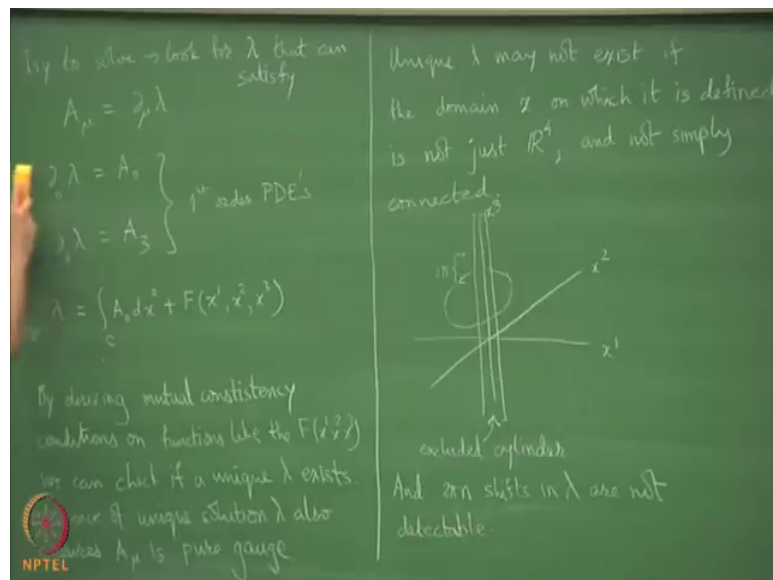 Try to solve → look for λ that can
satisfy
A_μ = ∂_μ λ
∂_0 λ = A_0
∂_3 λ = A_3
1st order PDE's
λ = ∫_C A_0 dx^0 + F(x^1, x^2, x^3)
By deriving mutual constistency
conditions on functions like the F(x^1 x^2 x^3)
we can check if a unique λ exists.
of unique solution λ also
A_μ is pure gauge.
NPTEL
Unique λ may not exist if
the domain x on which it is defined
is not just ℝ^4, and not simply
connected.
x^3
x^2
x^1
excluded cylinder
And 2πn shifts in λ are not
detectable.